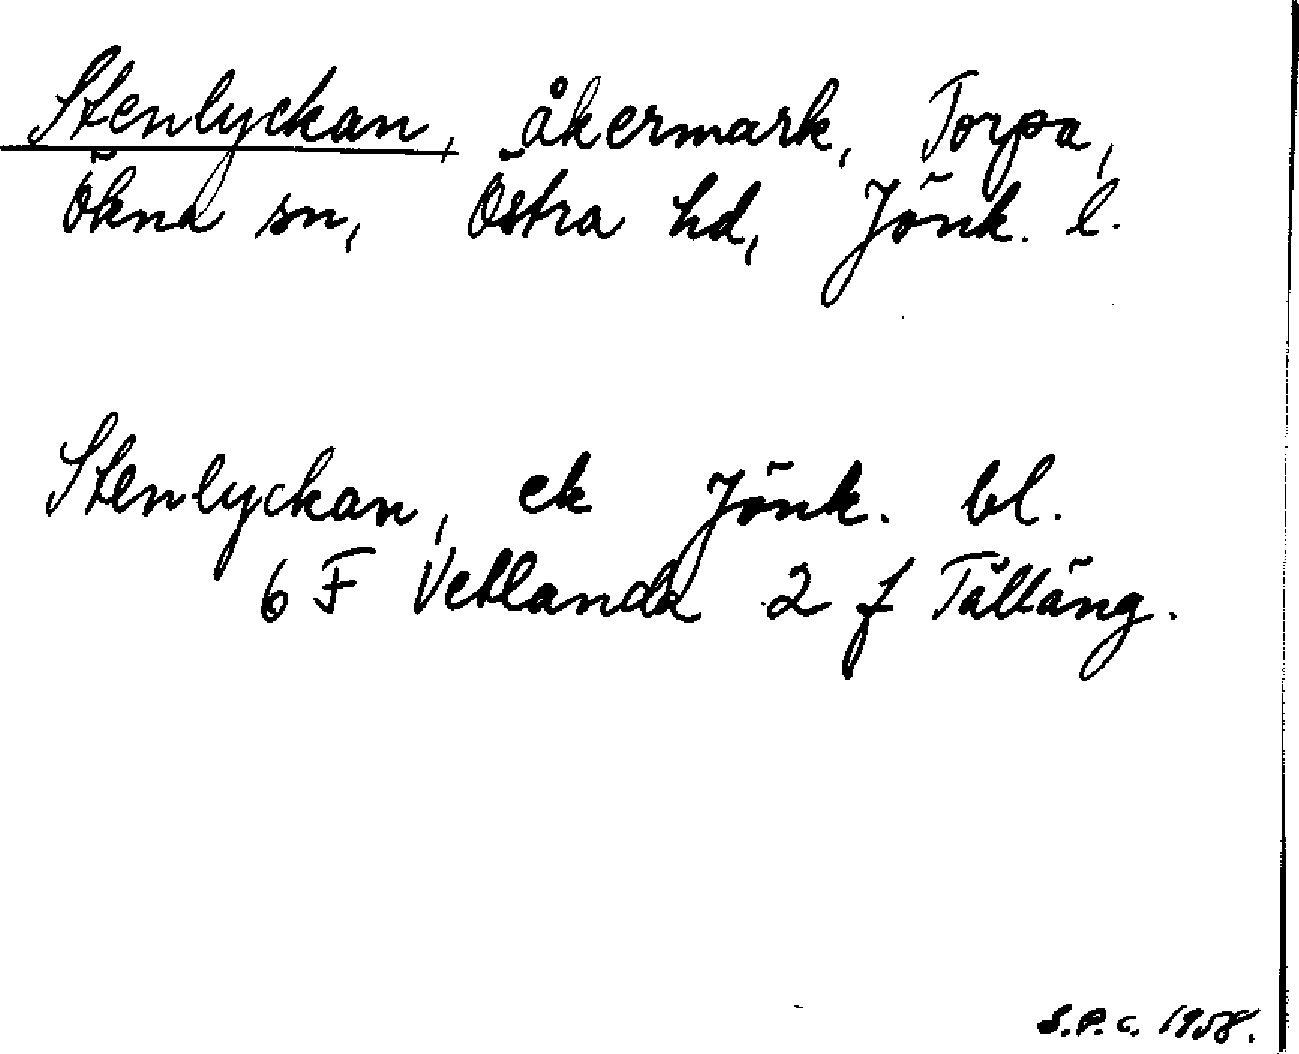 Stenlyckan, åkermark, Torpa,
Ökna sn, Östra hd, Jönk. l.
Stenlyckan, ek Jönk. bl.
6 F Vetlanda 2 f Tålläng.
S.P.C. 1958.